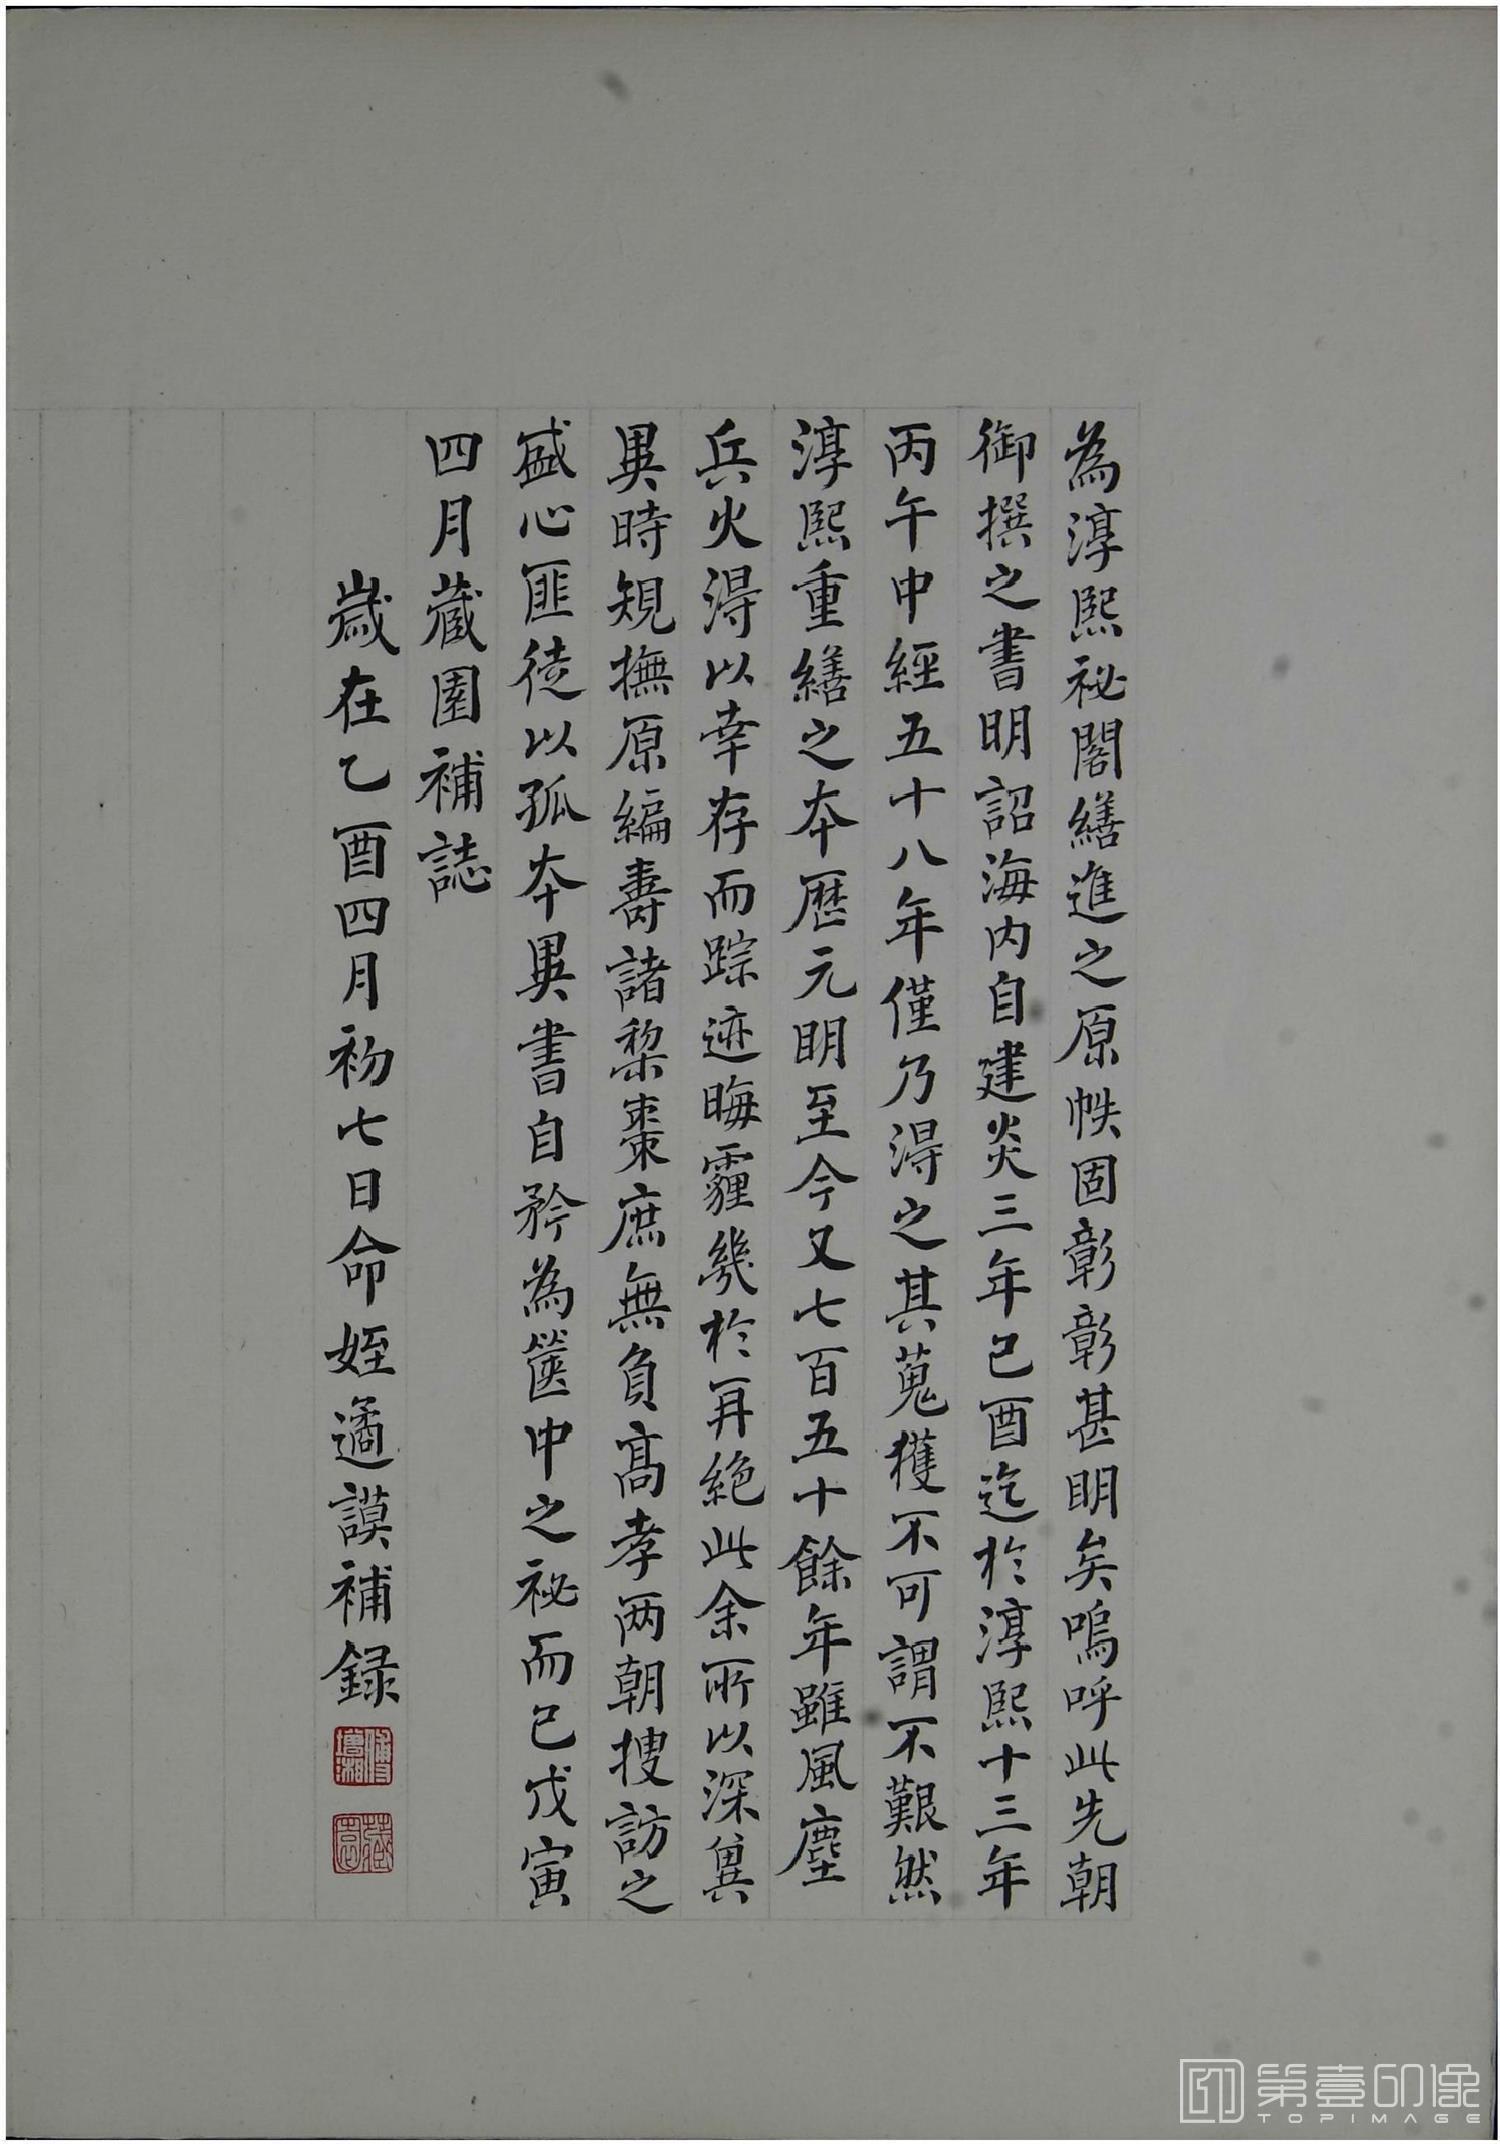 為淳熙祕閣繕進之原帙固彰彰甚明矣嗚呼此先朝
御撰之書明詔海內自建炎三年己酉迄於淳熙十三年
丙午中經五十八年僅乃得之其蒐獲不可謂不艱然
淳熙重繕之本歷元明至今又七百五十餘年雖風塵
兵火得以幸存而踪迹晦霾幾於再絕此余所以深冀
異時規撫原編壽諸棃棗庶無負高孝兩朝搜訪之
盛心匪徒以孤本異書自矜為篋中之祕而已戊寅
四月藏園補誌
歲在乙酉四月初七日命姪遹謨補録
傅增湘
藏園
第壹印像
TOPIMAGE